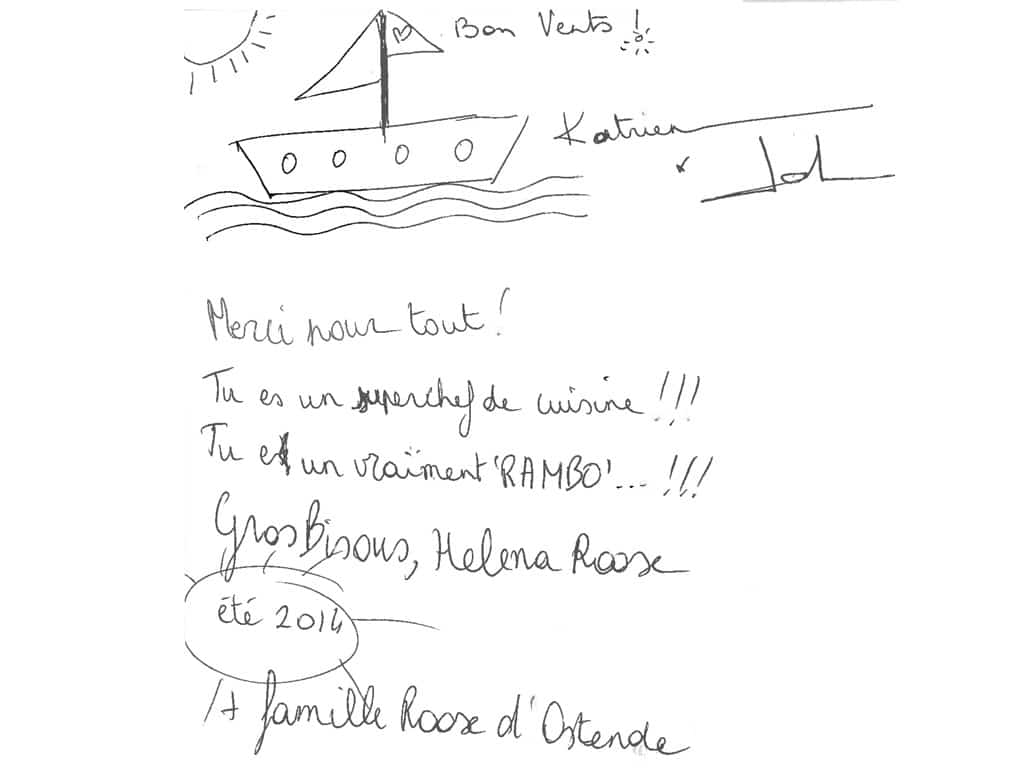 Bon Vents !
Katrien
Merci pour tout !
Tu es un superchef de cuisine !!!
Tu es un vraïment 'RAMBO'... !!!
Gros Bisous, Helena Roose
été 2014
/+ famille Roose d'Ostende